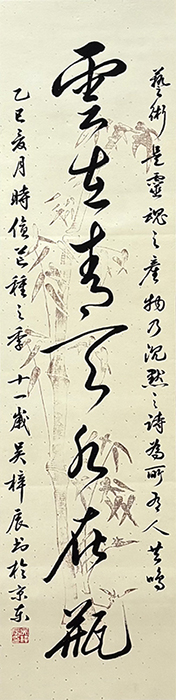 藝術是靈魂之產物乃沉默之詩為所有人共鳴
雲在青天水在瓶
乙巳夏月時值芒種之季十一歲吴梓辰书於京东